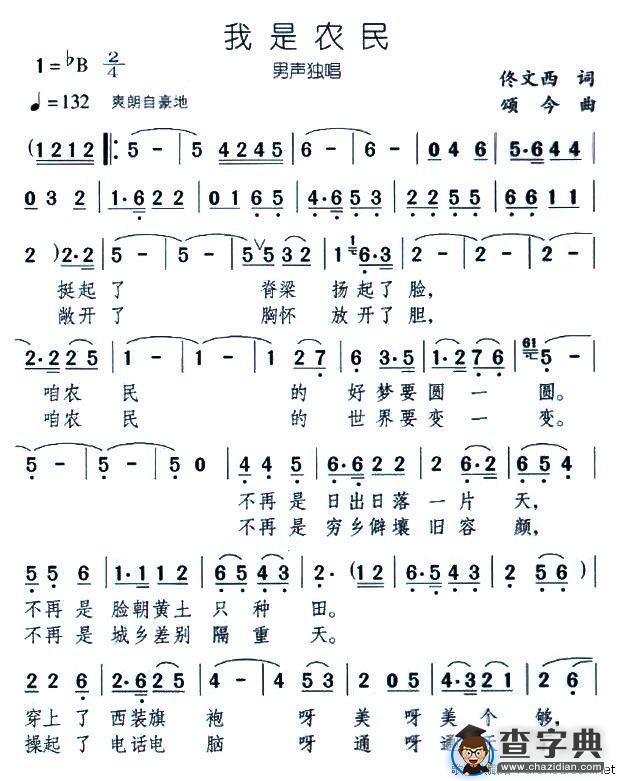 我是农民
男声独唱
1=♭B 2/4
♩=132 爽朗自豪地
佟文西 词
颂今 曲
(1212 ‖: 5 - | 5 4245 | 6 - | 6 - | 046 | 5·644 |
032 | 1·622 | 0165 | 3·653 | 2255 | 6611 |
2) 2·2 | 5 - | 5 - | 55532 | 1 6·3 | 2 - | 2 - |
挺起了 脊梁 扬起了脸,
敞开了 胸怀 放开了胆,
2·225 | 1 - | 1 - | 127 | 63·5 | 1·276 | 61 5 - |
咱农民 的好梦要圆一圆。
咱农民 的世界要变一变。
5 - | 5 - | 50 | 445 | 6·622 | 26·2 | 654 |
不再是日出日落一片天,
不再是穷乡僻壤旧容颜,
556 | 1·112 | 6543 | 2· (12 | 6·543 | 256) |
不再是脸朝黄土只种田。
不再是城乡差别隔重天。
226 | 2·625 | 4 - | 453 | 205 | 453·1 | 26 |
穿上了西装旗袍 呀美呀美个够,
操起了电话电脑 呀通呀通
查字典
www.chazidian.com